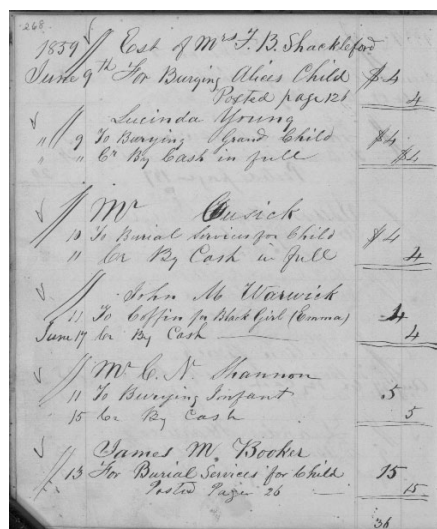 268
1859 Est of Mrs F. B. Shackleford
June 9th For Burying Alices Child $4
Posted page 126 4
Lucinda Young
" 9 To Burying Grand Child $4
" Cr By Cash in full $4
Mr Cusick
10 To Burial Services for Child $4
11 Cr By Cash in full 4
John M Warwick
11 To Coffin for Black Girl (Emma) 4
June 17 Cr By Cash 4
Mr C. N. Shannon
11 To Burying Infant 5
15 Cr By Cash 5
James M. Booker
13 For Burial Services for Child 15
Posted Page 26 15
36